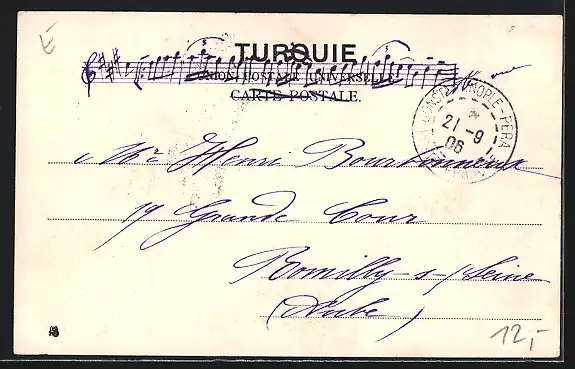 É
TURQUIE.
UNION POSTALE UNIVERSELLE
CARTE POSTALE.
CONSTANTINOPLE-PERA
21-9
06
à Mr Henri Bourbonneux
19 Grande Cour
Romilly-s-/Seine
(Aube)
12,-